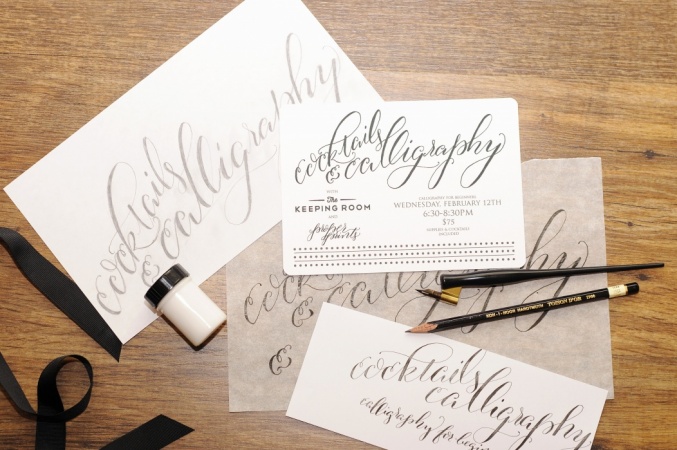 cocktails
& calligraphy
cocktails
& calligraphy
WITH
The
KEEPING ROOM
AND
CALLIGRAPHY FOR BEGINNERS
WEDNESDAY, FEBRUARY 12TH
6:30-8:30PM
$75
SUPPLIES & COCKTAILS
INCLUDED
cocktails
& calligraphy
&
KOH-I-NOOR HARDTMUTH
cocktails
calligraphy
calligraphy for begin